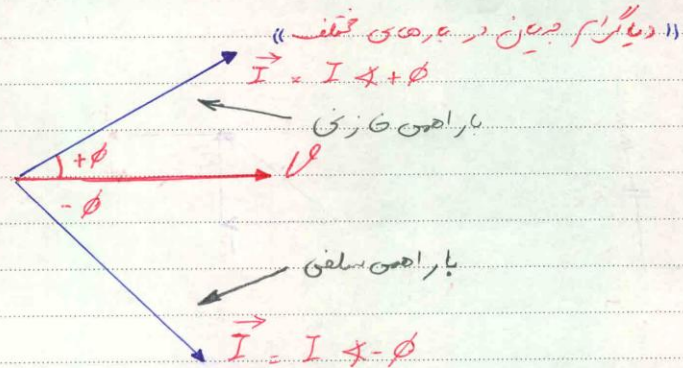 (( دیاگرام جریان در بارهای مختلف ))
I⃗ = I ∡+Φ
بار اهمی خازنی
+Φ
V
-Φ
بار اهمی سلفی
I⃗ = I ∡-Φ